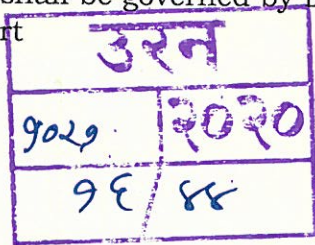 shall be governed by
rt
उरन
१०२१. २०२०
१६ / ४४